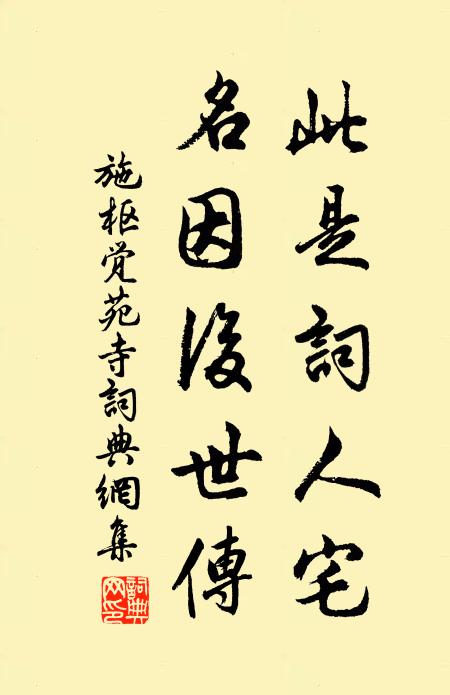 此是詞人宅
名因後世傳
施枢觉苑寺詞典網集
詞典网印